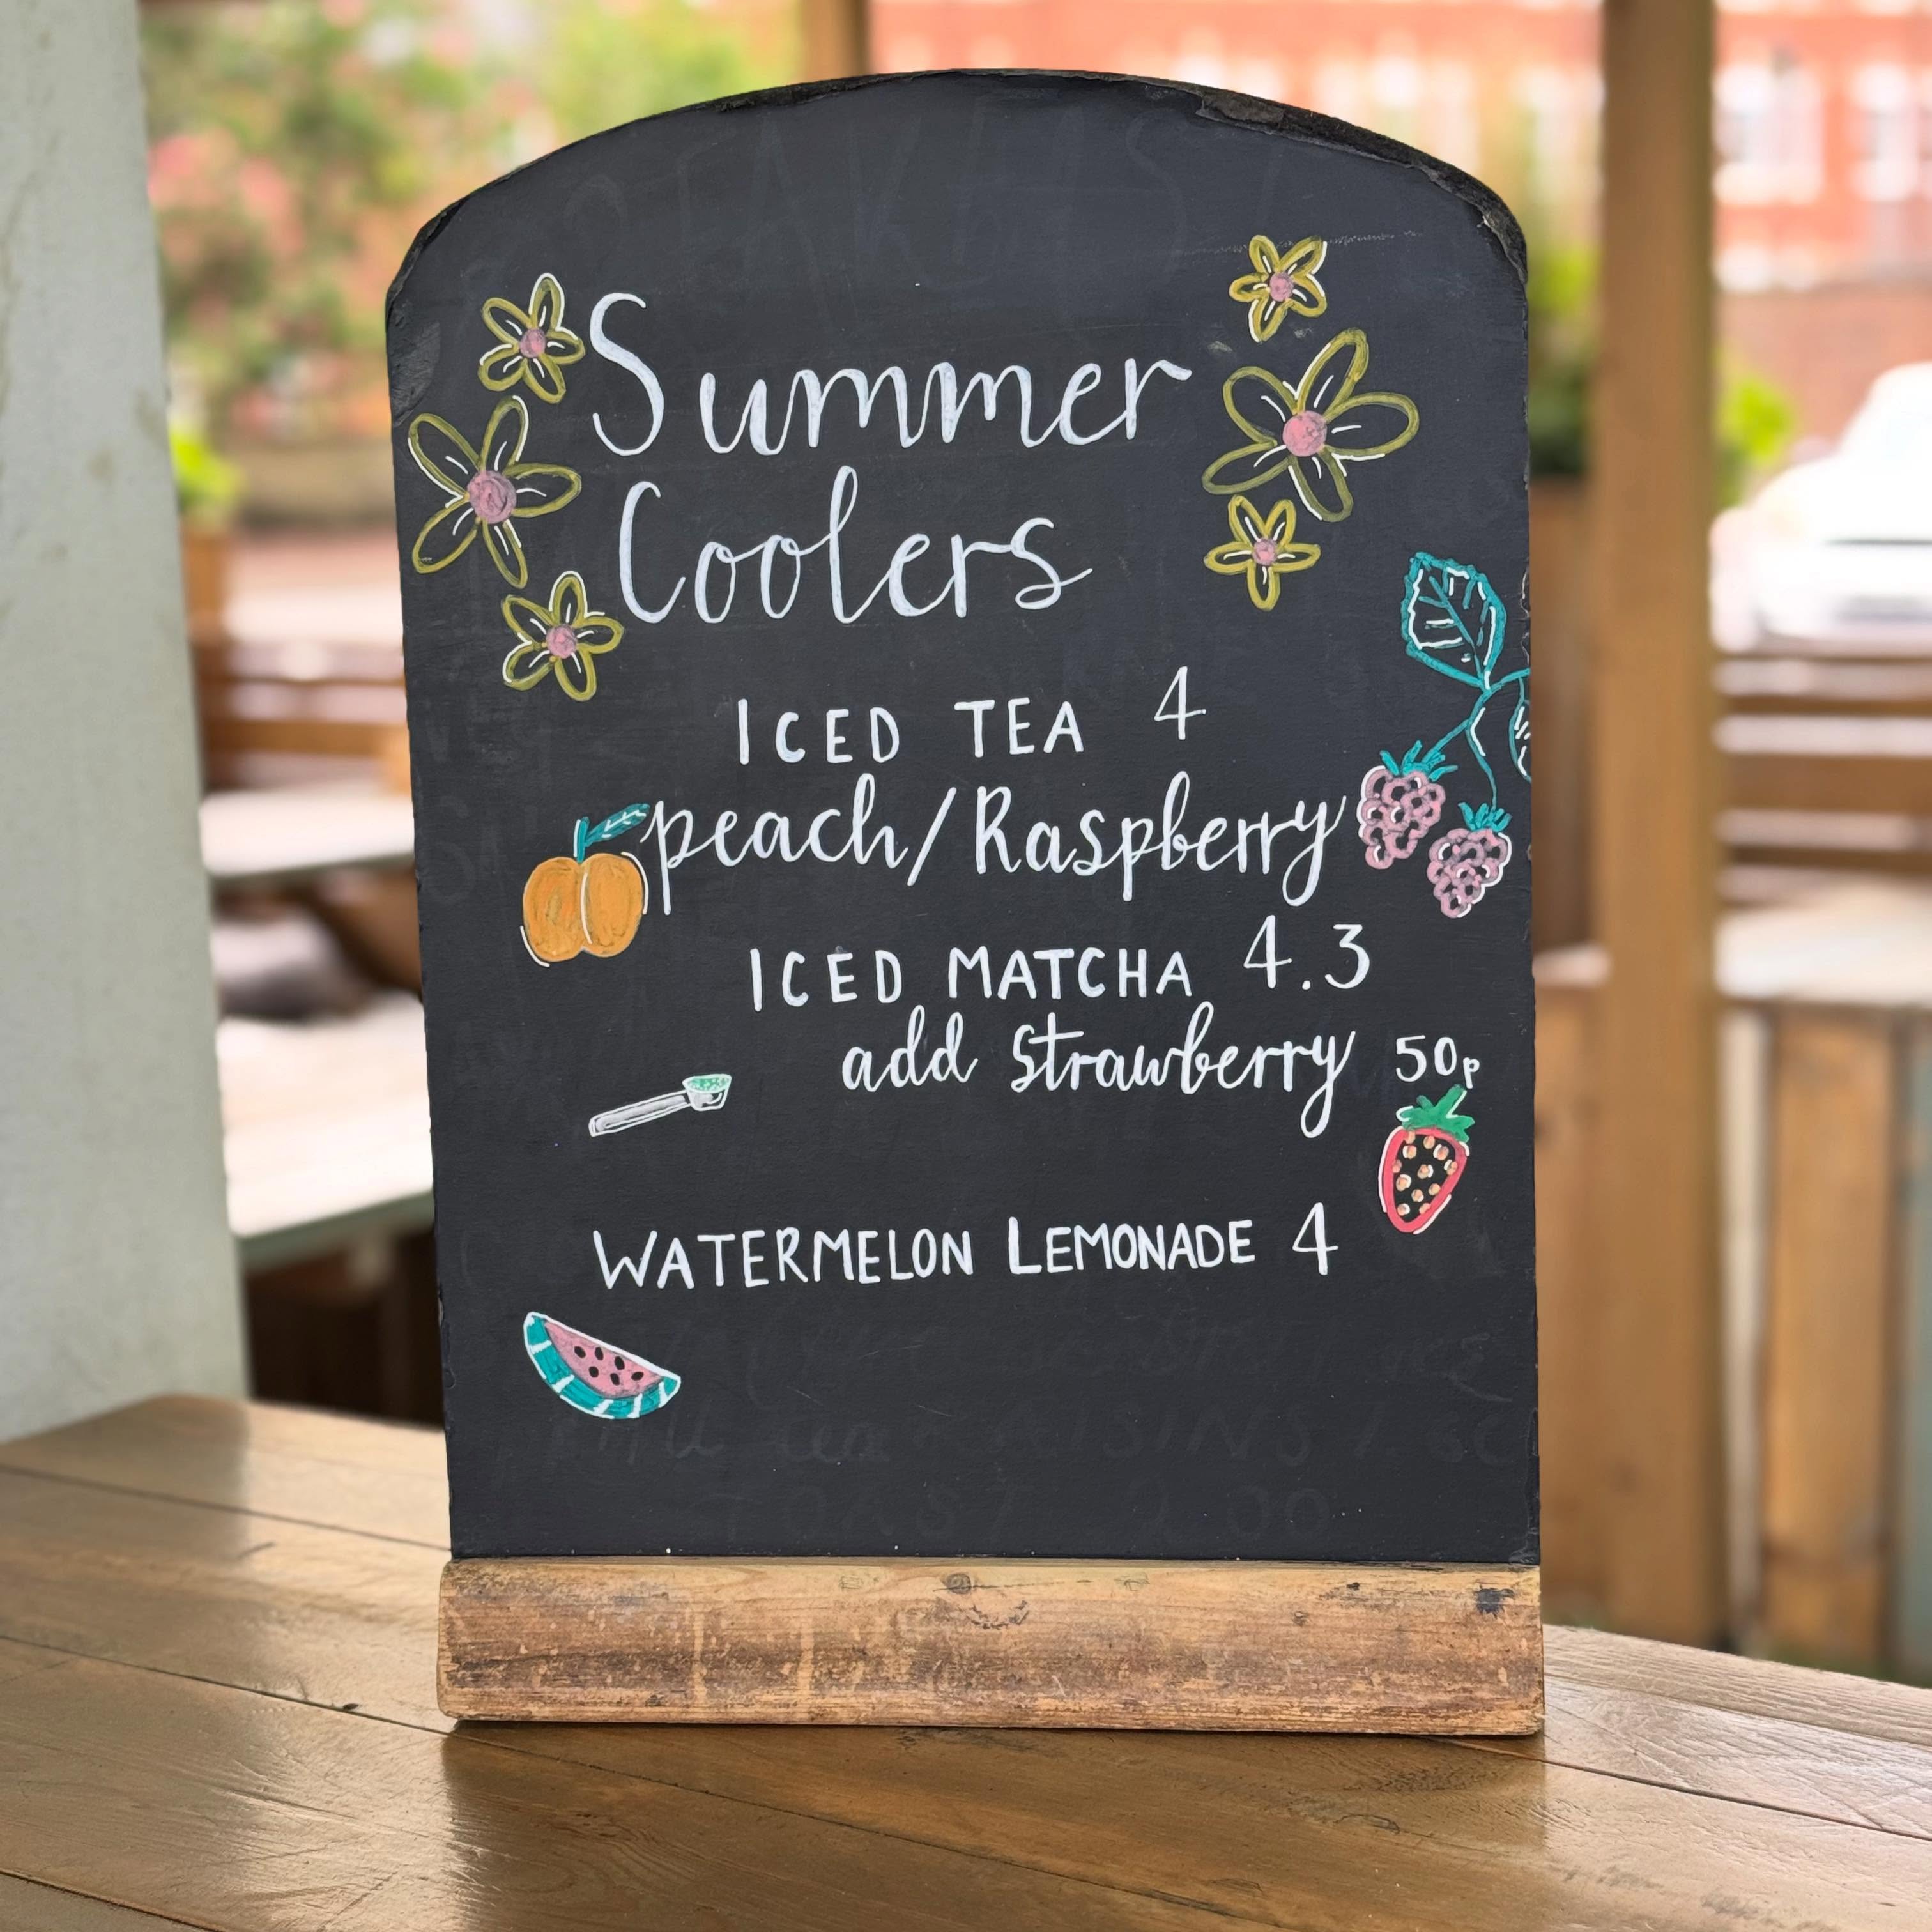 Summer
Coolers
ICED TEA 4
peach/Raspberry
ICED MATCHA 4.3
add strawberry 50p
WATERMELON LEMONADE 4
TOAST 2.00